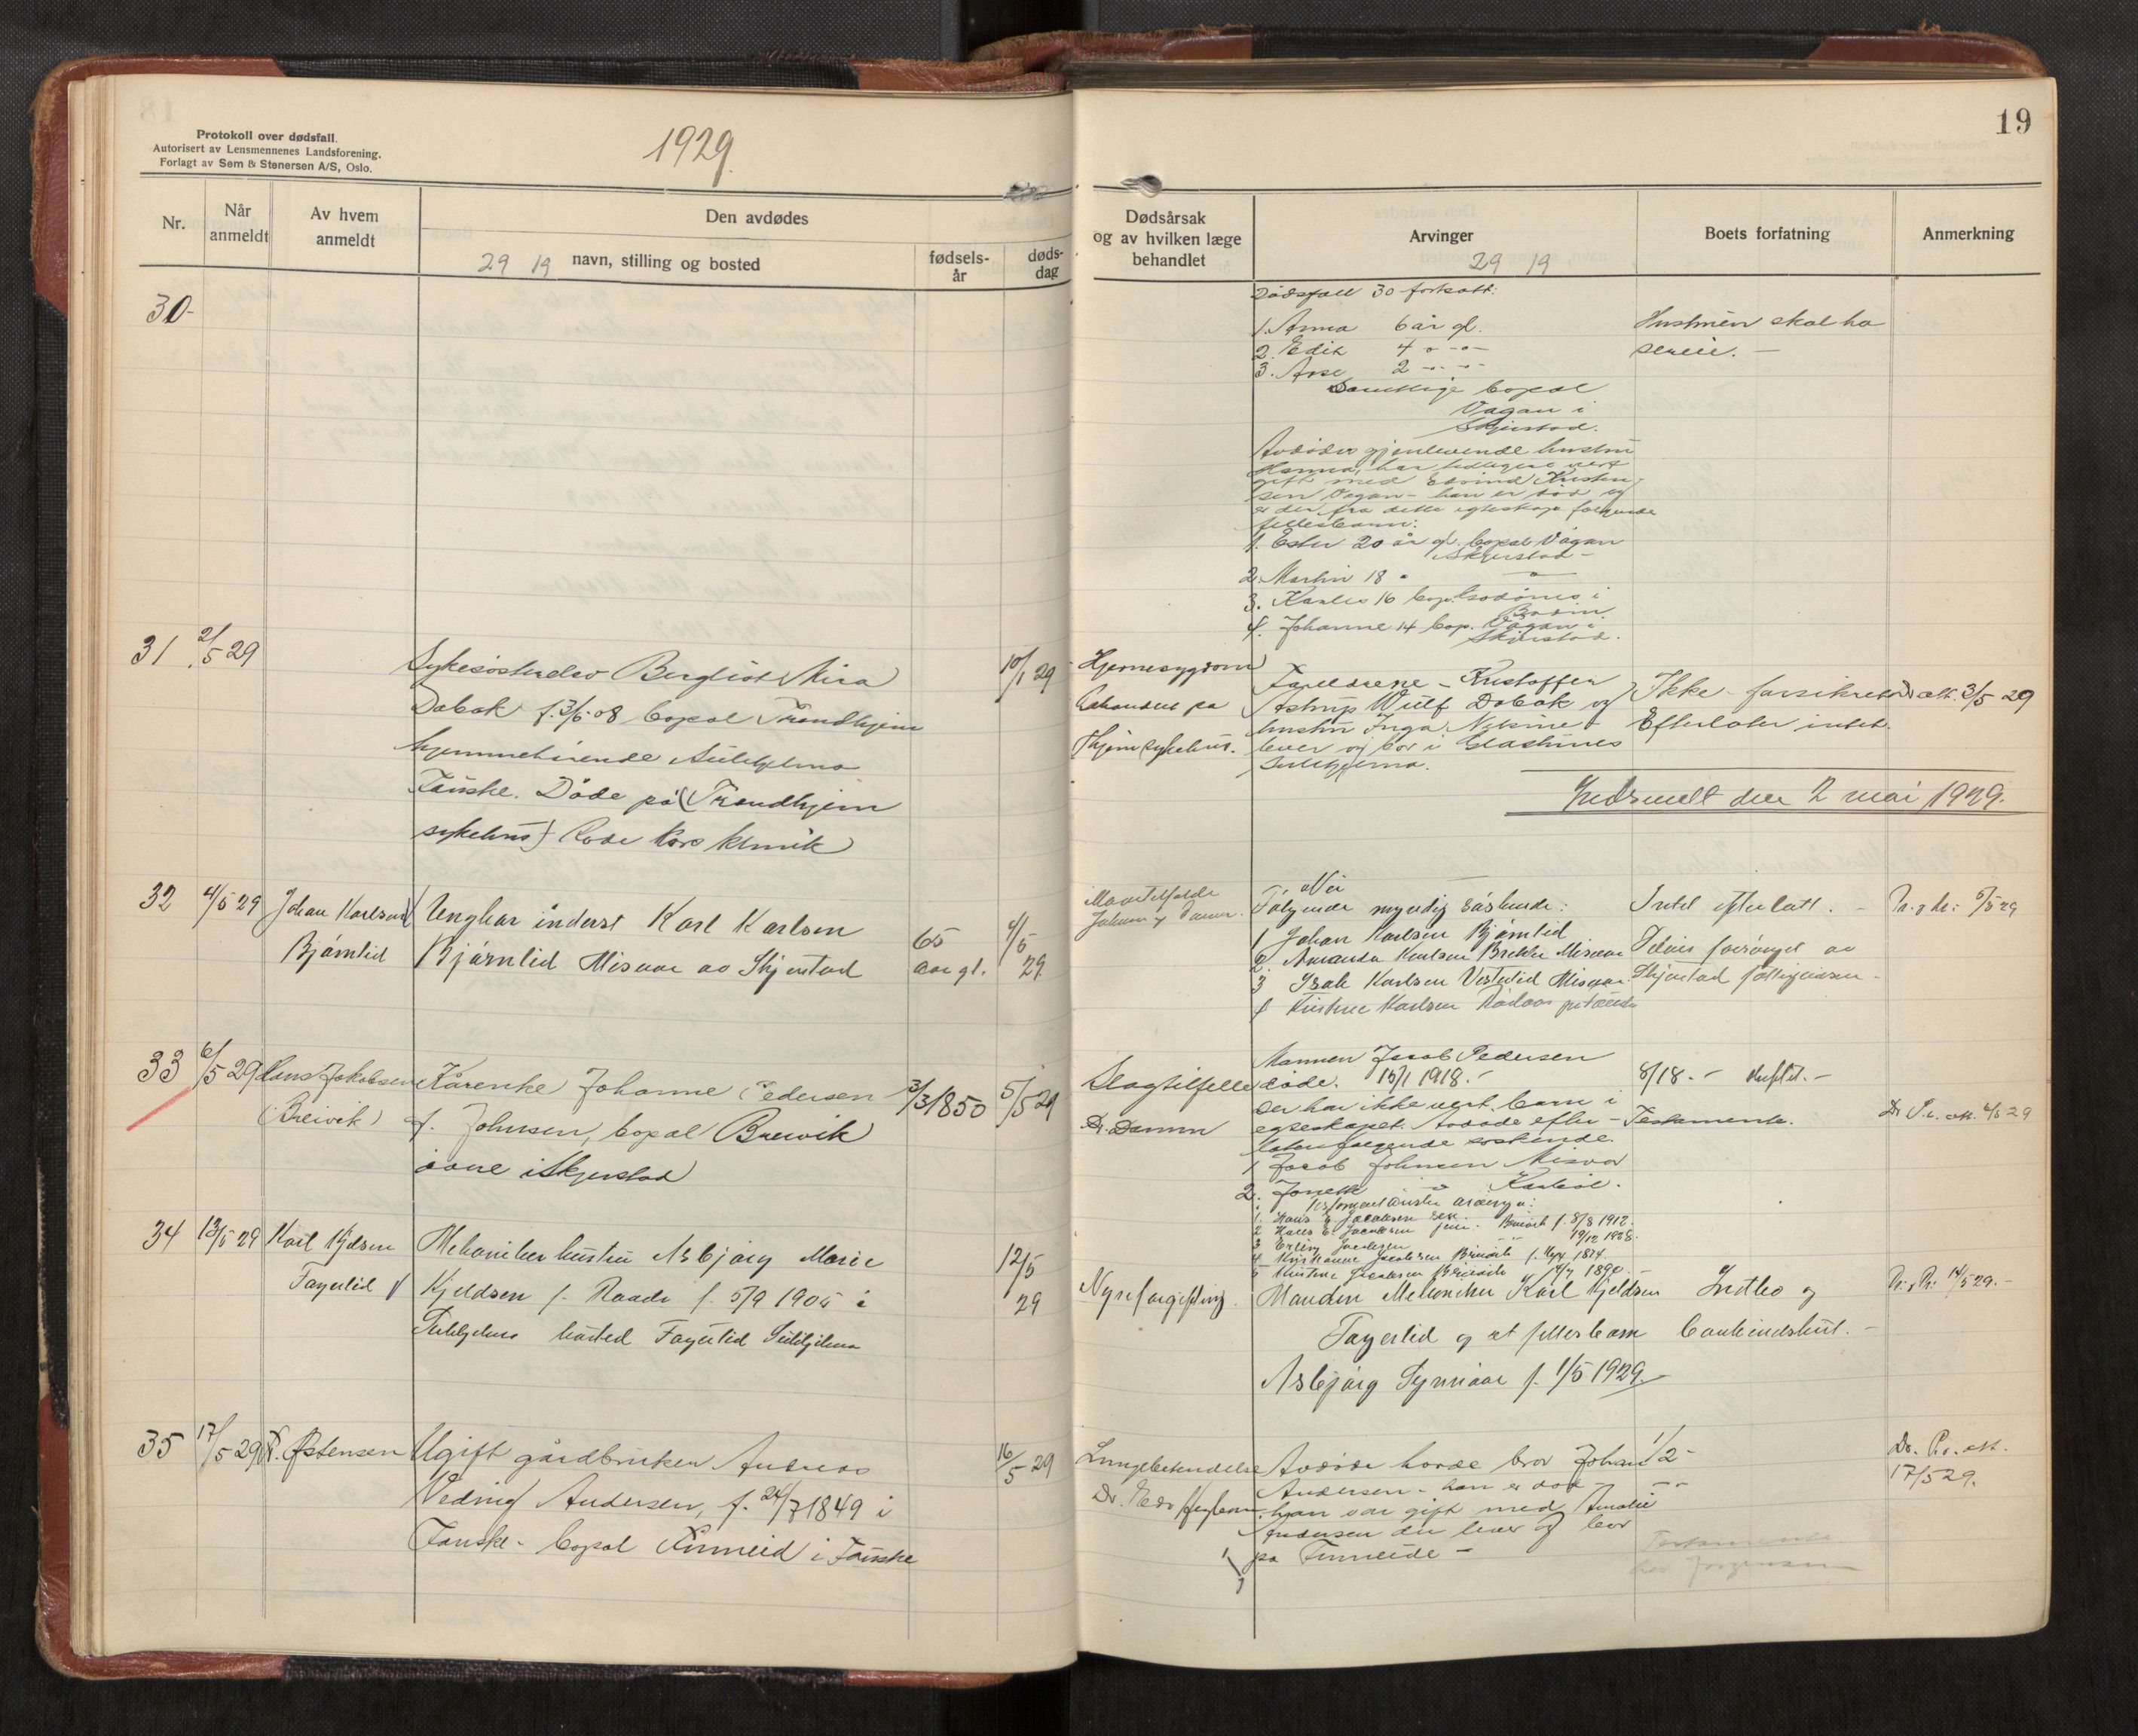 Protokoll over dødsfall.
Autorisert av Lensmennenes Landsforening.
Forlagt av Sem & Stenersen A/S, Oslo.
1929.
19
Nr.
Når anmeldt
Av hvem anmeldt
Den avdødes
29 19 navn, stilling og bosted
fødsels-år
døds-dag
Dødsårsak og av hvilken læge behandlet
Arvinger
29 19
Boets forfatning
Anmerkning
30-
Dødsfall 30 fortsatt:
1. Anna 6 år gl.
2. Edit 4
3. Åse 2
Samtlige bopæl
Vågan i
Skjerstad.
Avdødes gjenlevende hustru
Hanna, har tidligere vært
gift med Edvind Kristen-
sen Vågan - han er død og
er der fra dette egteskap følgende
fellesbarn:
1. Ester 20 år gl. bopæl Vågan
Skjerstad -
2. Martin 18
3. Karles 16 bop. i
Bodin
4. Johanne 14 bop. Vågan i
Skjerstad.
Hustruen skal ha
31
2/5 29
Sykesøsterelev Bergliot
Dobak f. 3/6-08 bopæl Trondhjem
hjemmehørende Sulitjelma
Fauske. Døde på (Trondhjem
sykehus) Røde Kors klinik
10/1 29
Hjernesygdom
Behandlet på
Thjem sykehus.
Foreldrene - Kristoffer
Astrup Wulf Dobak og
hustru Inga
lever og bor i Glastunes
Sulitjelma.
Ikke forsikret
Efterlater intet.
att. 3/5 29
Gjedsendt den 2 mai 1929.
32
4/5 29
Johan Karlsen
Bjørnlid
Ungkar inderst Karl Karlsen
Bjørnlid Misvær av Skjerstad
65
aar gl.
4/5
29
Nei
Følgende myndig søskende:
1 Johan Karlsen Bjørnlid
2. Amanda Karlsen Brekke Misvær
3 Isak Karlsen Vesterlid Misvær
4 Kristine Karlsen
Intet efterlatt. -
forsørget av
Skjerstad fattigvæsen -
5/5 29
33
6/5 29
Hans Jakobsen
(Breivik)
Kårenke Johanne Pedersen
f. Johnsen, bopæl Breivik
øvre i Skjerstad
3/3 1850
5/5 29
Slagtilfelle
Dr. Damm
Mannen Jacob Pedersen
døde. 15/1 1918.-
Der har ikke vært barn i
egteskapet. Avdøde efter-
later følgende søskende.
1 Jacob Johnsen Misvær
2.
Testamentariske arvinger:
1. Hans E Jacobsen sen.
2 Hans E. Jacobsen jun. Breivik f. 8/8 1912.
3 Erling Jacobsen 19/12 1908.
4 Jacobsen Breivik 1874
5 Kristine Jacobsen Breivik 1890
8/18.-
Testamente.
34
13/5 29
Karl Kjeldsen
Fagerlid
Mekaniker hustru Asbjørg Marie
Kjeldsen f. Raade f. 5/9 1905 i
Sulitjelma bosted Fagerlid Sulitjelma
12/5
29
Nyreforgiftning
Manden Mekaniker Karl Kjeldsen
Fagerlid og et fellesbarn
Asbjørg Synnøve f. 1/5 1929.
Indbo og
bankindskud.-
14/5 29.-
35
17/5 29
Østensen
Ugift gårdbruker Andreas
Vedring Andersen, f. 24/7 1849 i
Fauske - bopæl Finneid i Fauske
16/5 29
Lungebetendelse
Avdøde hadde bror Johan
Andersen - han er død -
han var gift med Amalie
Andersen der lever og bor
på Finneide -
1/2 -
Testamente
hos Jørgensen
17/5 29.